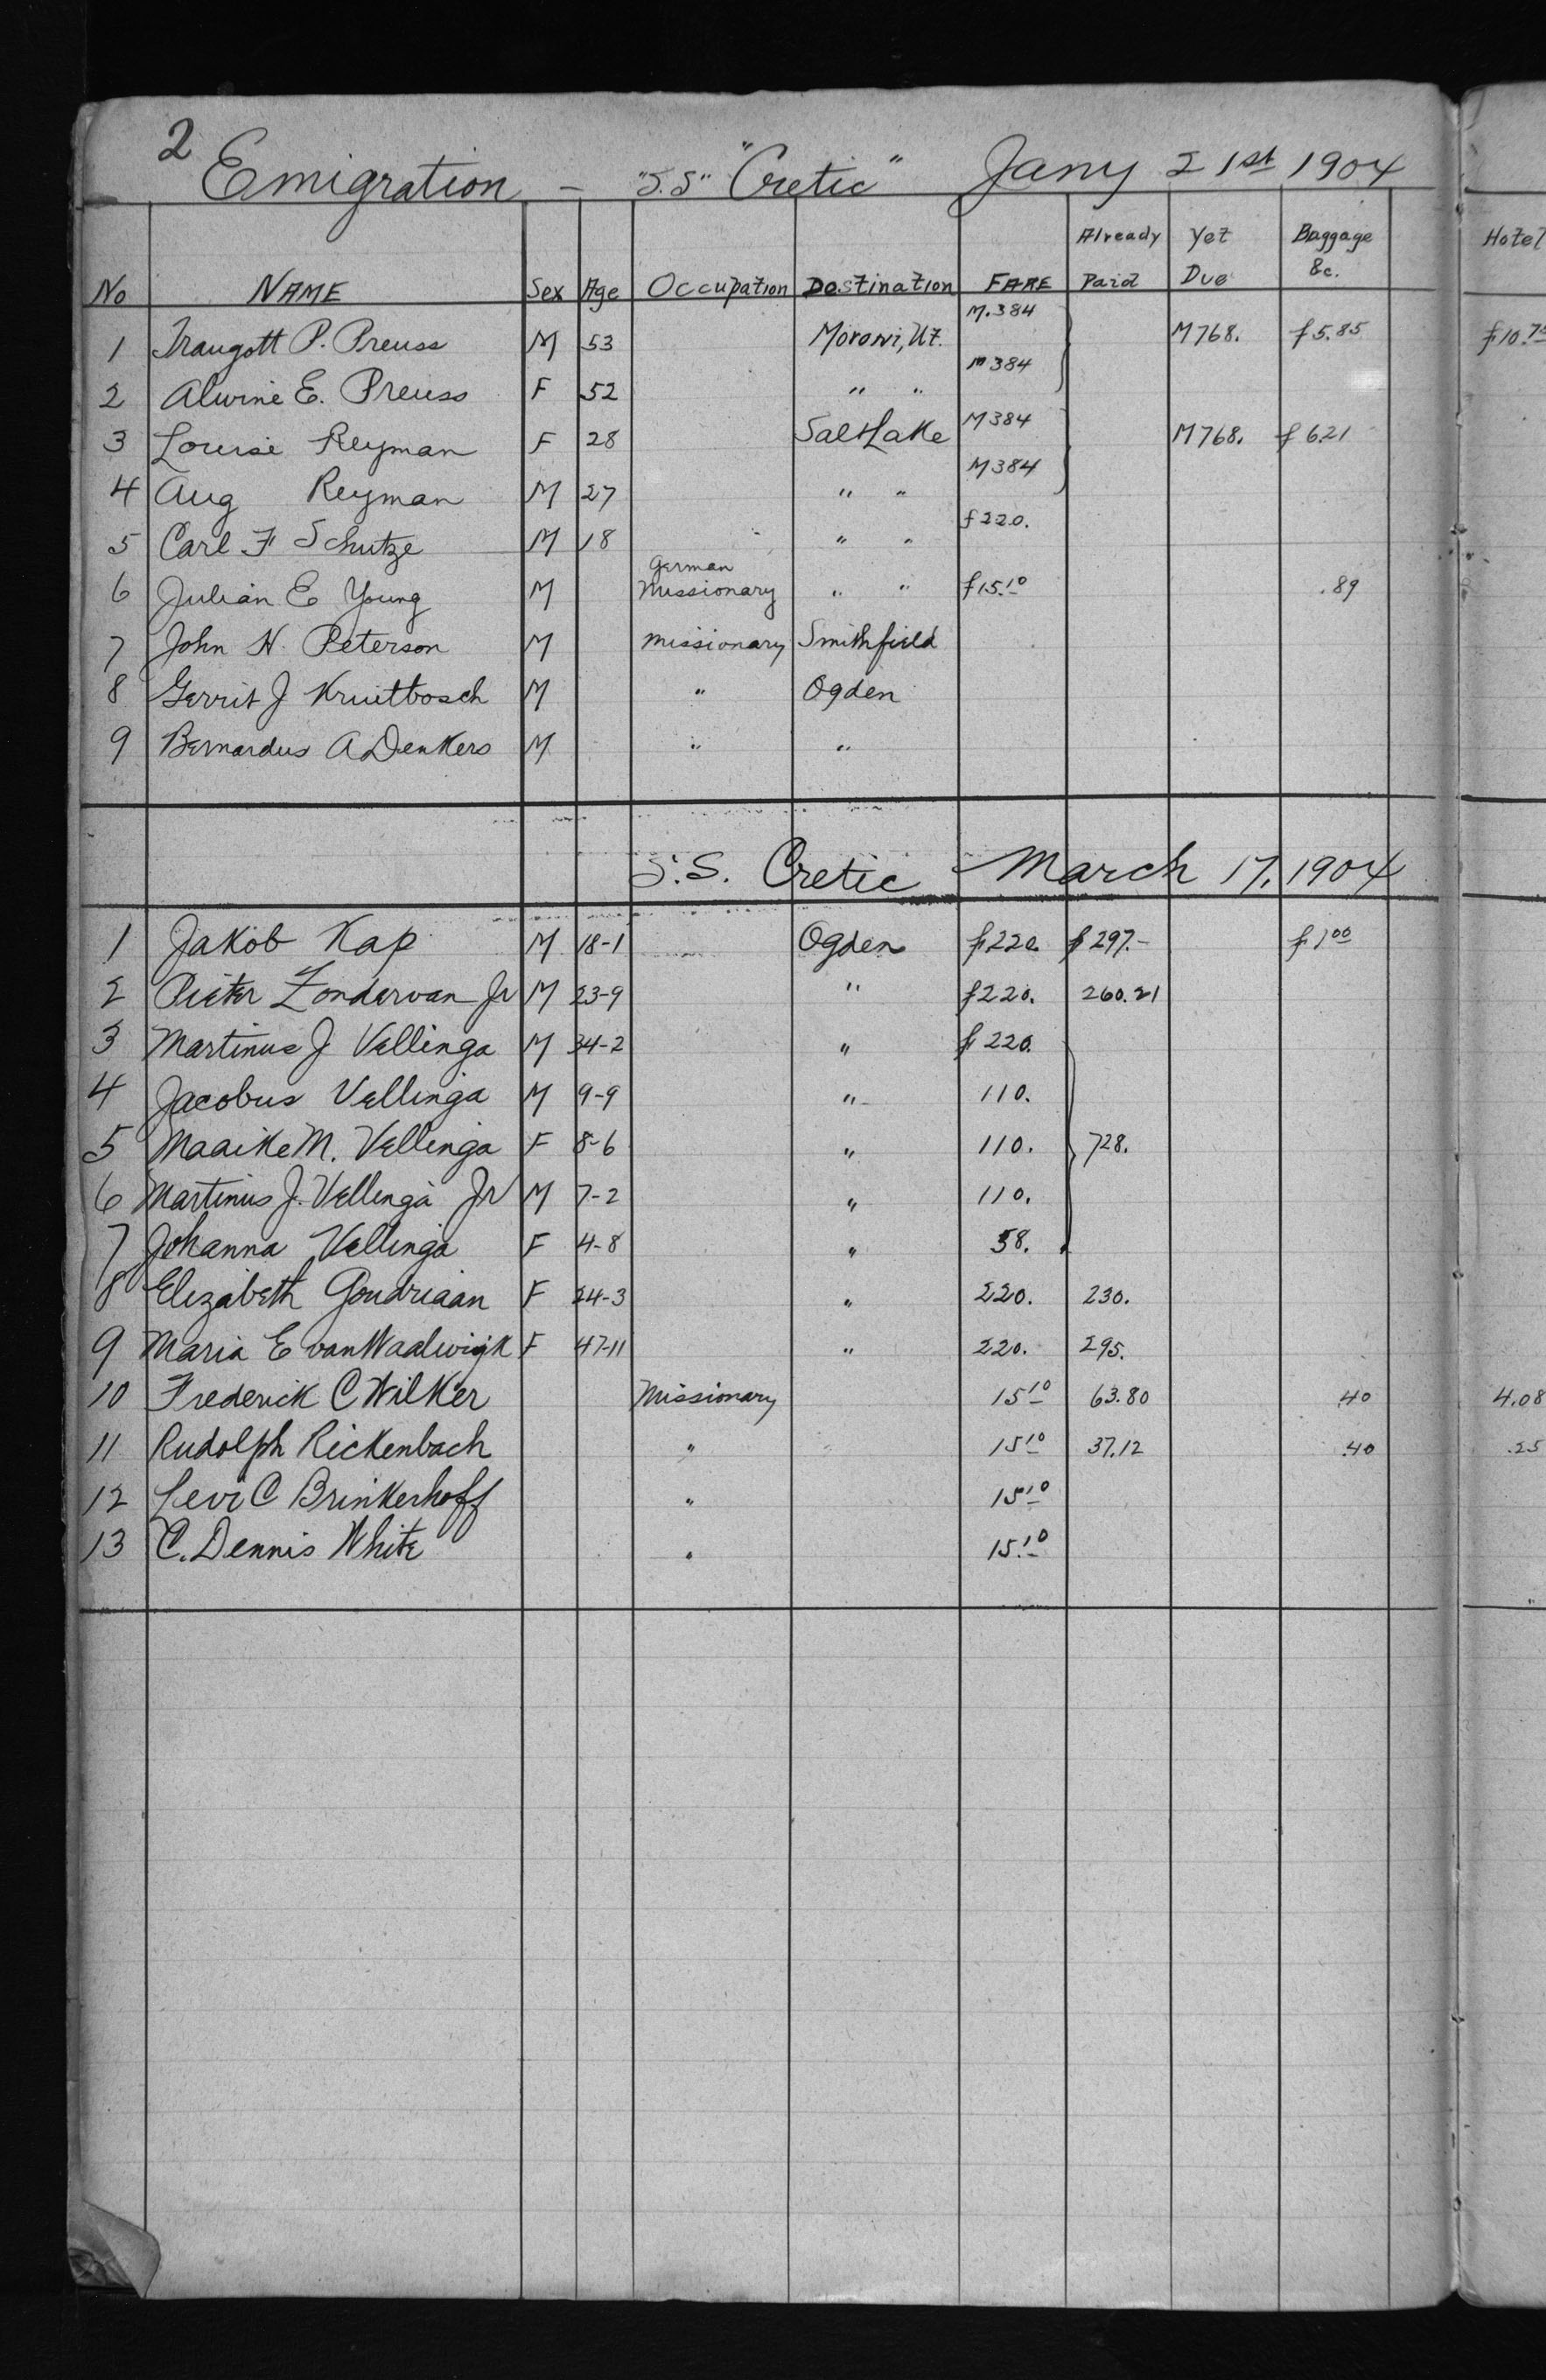 2
Emigration - "S.S" "Cretic" Jany 21st 1904
No NAME Sex Age Occupation Destination FARE Already Paid Yet Due Baggage &c. Hotel
1 Traugott P. Preuss M 53 Moroni, Ut. M.384 M768. f5.85
2 Alwine E. Preuss F 52 " " M384
3 Louise Reyman F 28 Salt Lake M384 M768. f 6.21
4 Aug Reyman M 27 " " M384
5 Carl F Schutze M 18 " " f220.
6 Julian E Young M German Missionary " " f15.10 .89
7 John H. Peterson M missionary Smithfield
8 Gerrit J Kruitbosch M " Ogden
9 Bernardus A Denkers M " "
S.S. Cretic March 17, 1904
1 Jakob Kap M 18-1 Ogden f220. f297.- f1.00
2 Pieter Zondervan Jr M 23-9 " f220. 260.21
3 Martinus J Vellinga M 34-2 " f220.
4 Jacobus Vellinga M 9-9 " 110.
5 Maaike M. Vellinga F 8-6 " 110. 728.
6 Martinus J. Vellinga Jr M 7-2 " 110.
7 Johanna Vellinga F 4-8 " 58.
8 Elizabeth Goudriaan F 24-3 " 220. 230.
9 Maria E van Waalwijk F 47-11 " 220. 295.
10 Frederick C Wilker Missionary 15 10 63.80 .40 4.08
11 Rudolph Rickenbach " 15 10 37.12 .40 .25
12 Levi C Brinkerhoff " 15 10
13 C. Dennis White " 15.10